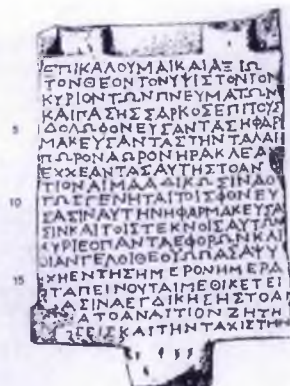 ΕΠΙΚΑΛΟΥΜΑΙΚΑΙΑΞΙΩ
ΤΟΝΘΕΟΝΤΟΝΥΨΙΣΤΟΝΤΟΝ
ΚΥΡΙΟΝΤΩΝΠΝΕΥΜΑΤΩΝ
ΚΑΙΠΑΣΗΣΣΑΡΚΟΣΕΠΙΤΟΥΣ
5 ΔΟΛΩΦΟΝΕΥΣΑΝΤΑΣΗΦΑΡ
ΜΑΚΕΥΣΑΝΤΑΣΤΗΝΤΑΛΑΙ
ΠΩΡΟΝΑΩΡΟΝΗΡΑΚΛΕΑΝ
ΕΧΧΕΑΝΤΑΣΑΥΤΗΣΤΟΑΝΑΙ
ΤΙΟΝΑΙΜΑΑΔΙΚΩΣΙΝΑΟΥ
10 ΤΩΣΓΕΝΗΤΑΙΤΟΙΣΦΟΝΕΥ
ΣΑΣΙΝΑΥΤΗΝΗΦΑΡΜΑΚΕΥΣΑ
ΣΙΝΚΑΙΤΟΙΣΤΕΚΝΟΙΣΑΥΤΩΝ
ΚΥΡΙΕΟΠΑΝΤΑΕΦΟΡΩΝΚΑΙ
ΟΙΑΝΓΕΛΟΙΘΕΟΥΩΠΑΣΑΨΥ
15 ΧΗΕΝΤΗΣΗΜΕΡΟΝΗΜΕΡΑ
ΤΑΠΕΙΝΟΥΤΑΙΜΕΘΙΚΕΤΕΙ
ΑΣΙΝΑΕΓΔΙΚΗΣΗΣΤΟΑΙ
ΑΤΟΑΝΑΙΤΙΟΝΖΗΤΗ
ΣΕΙΣΚΑΙΤΗΝΤΑΧΙΣΤΗ